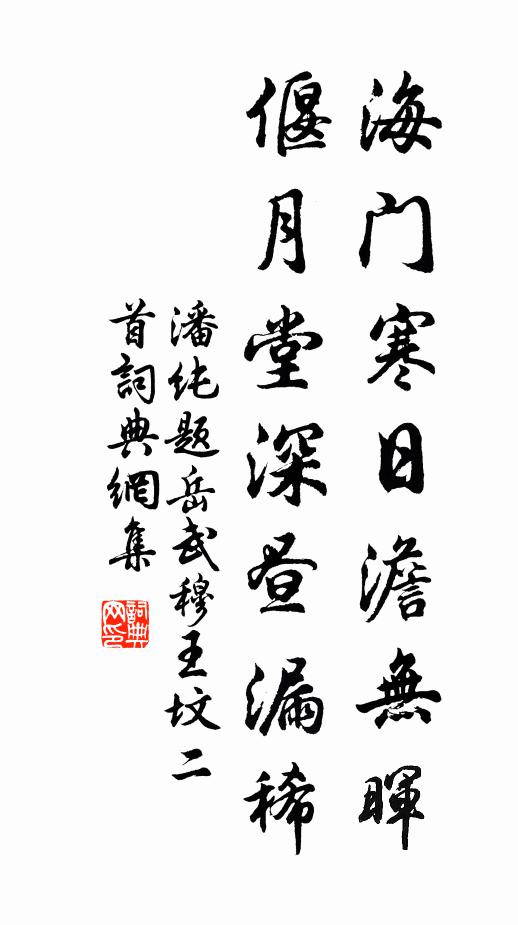 海门寒日澹無暉
偃月堂深昼漏稀
潘纯题岳武穆王坟二
首詞典網集
詞典网印